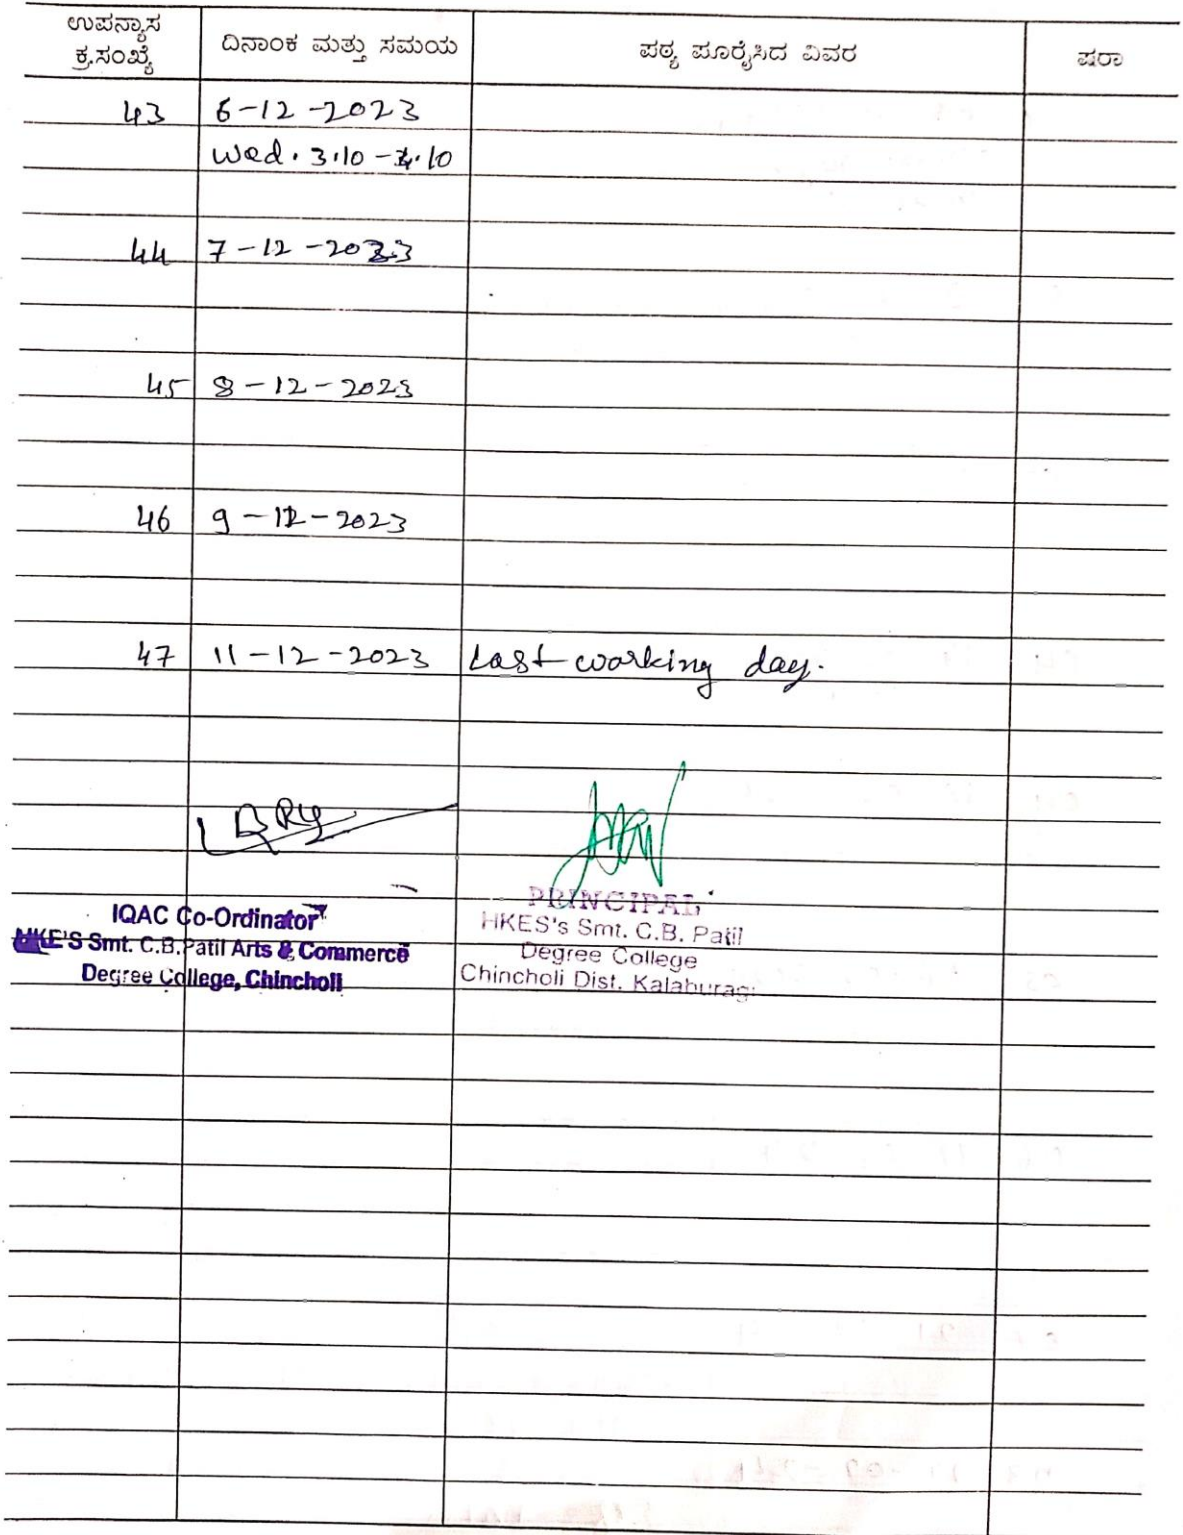 ಉಪನ್ಯಾಸ
ಕ್ರ.ಸಂಖ್ಯೆ
ದಿನಾಂಕ ಮತ್ತು ಸಮಯ
ಪಠ್ಯ ಪೂರೈಸಿದ ವಿವರ
ಷರಾ
43 6-12-2023
Wed. 3.10-4.10
44 7-12-2023
45 8-12-2023
46 9-12-2023
47 11-12-2023 Last working day.
IQAC Co-Ordinator
HKE'S Smt. C.B.Patil Arts & Commerce
Degree College, Chincholi
PRINCIPAL
HKES's Smt. C.B. Patil
Degree College
Chincholi Dist. Kalaburagi